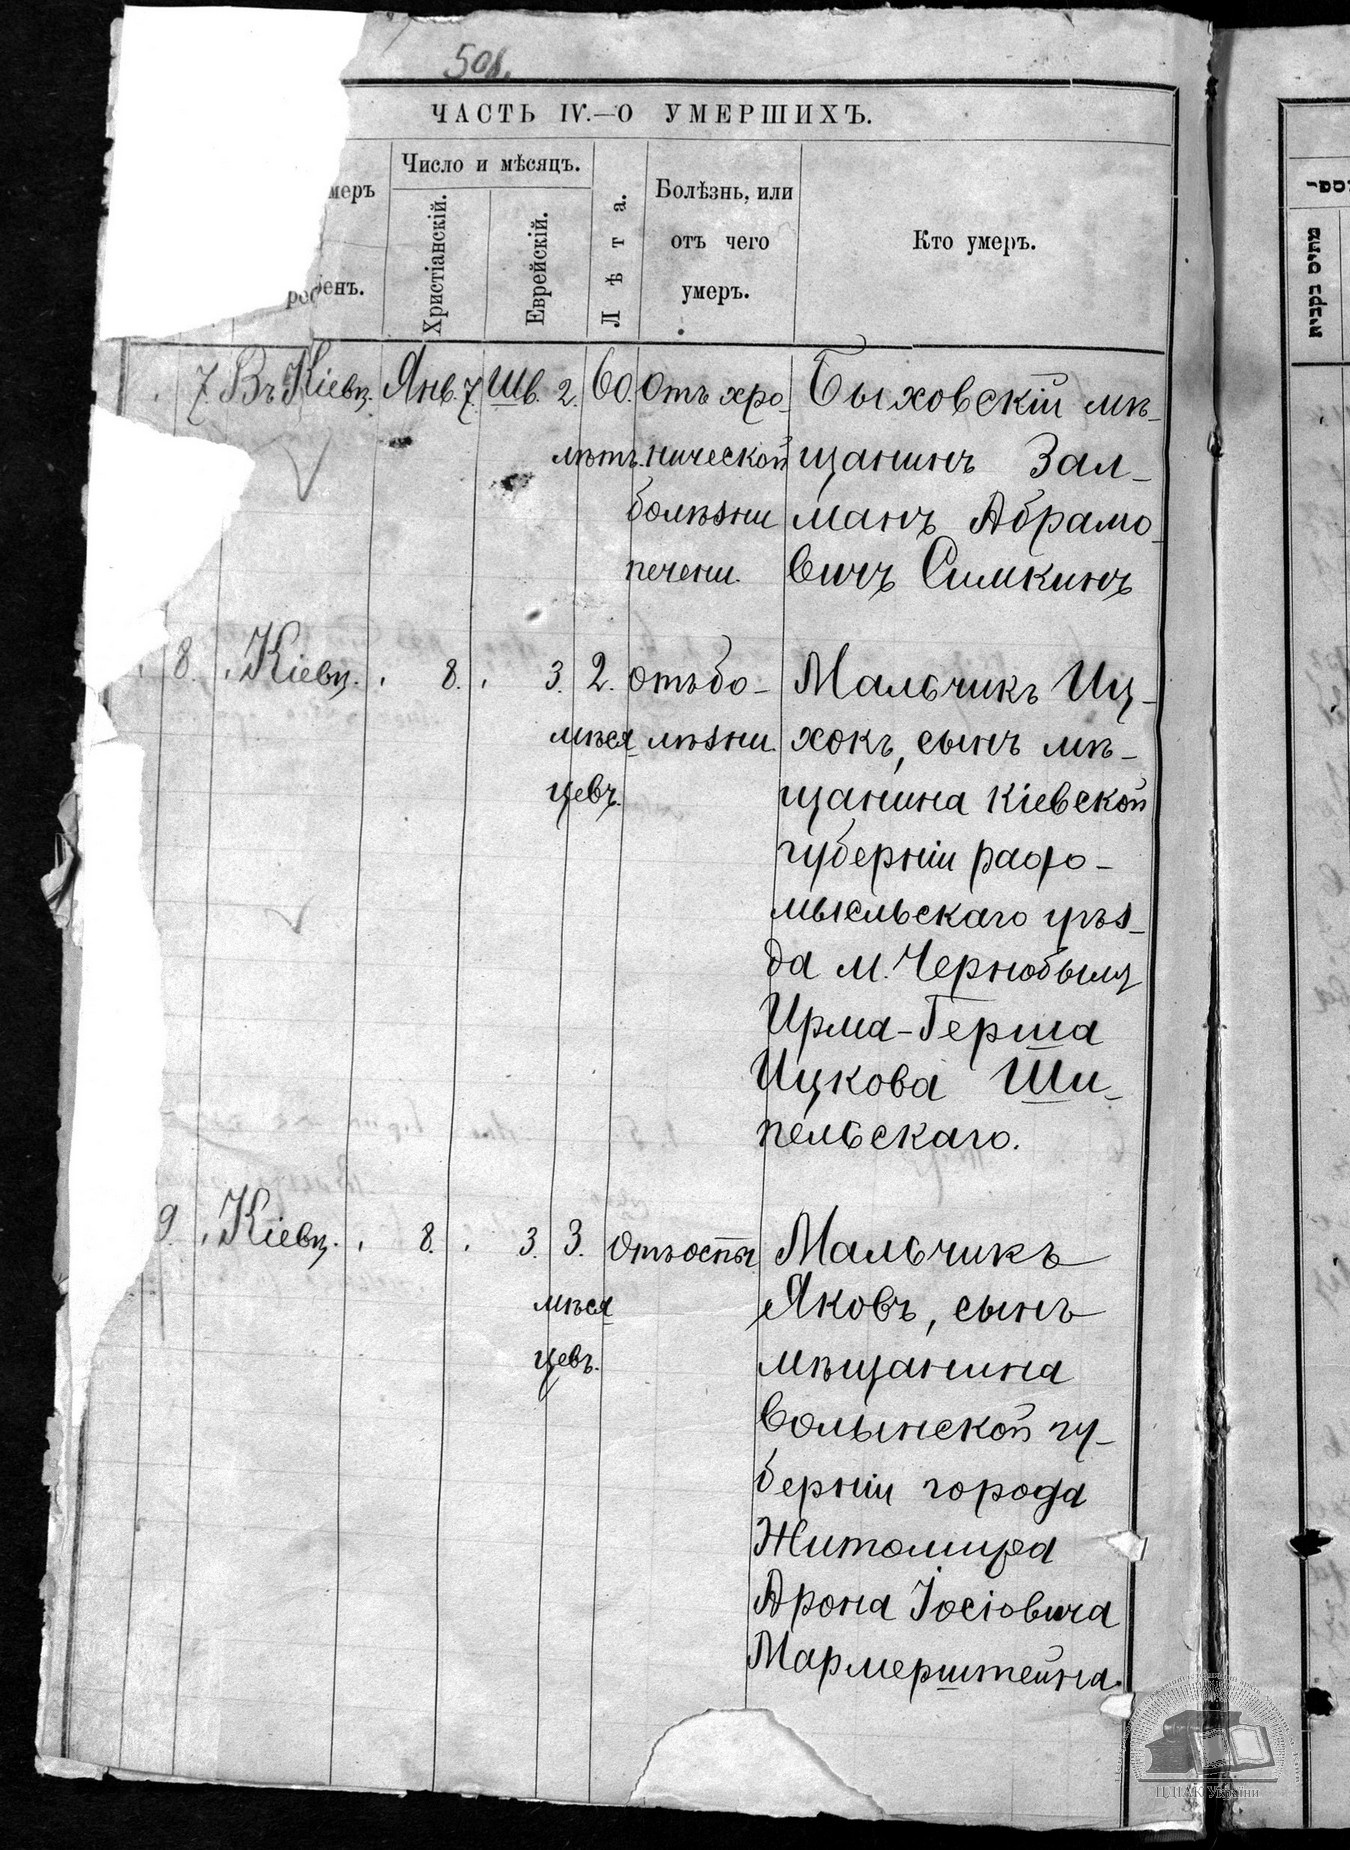 508.
ЧАСТЬ IV.—О УМЕРШИХЪ.
меръ
бенъ.
Число и мѣсяцъ.
Христіанскій.
Еврейскій.
Лѣта.
Болѣзнь, или
отъ чего
умеръ.
Кто умеръ.
7 Въ Кіевѣ. Янв. 7. Шв. 2. 60. Отъ хро- Быховскій мѣ-
лѣтъ. нической щанинъ Зал-
болѣзни манъ Абрамо-
печени. вичъ Симкинъ
8. Кіевѣ. 8. 3. 2. Отъ бо- Мальчикъ Иц-
мѣся- лѣзни. хокъ, сынъ мѣ-
цевъ. щанина Кіевской
губерніи радо-
мысльскаго уѣз-
да м. Чернобыля
Ирма-Герша
Ицкова Ши-
пельскаго.
9. Кіевѣ. 8. 3. 3. Отъ оспы Мальчикъ
мѣся- Яковъ, сынъ
цевъ. мѣщанина
Волынской гу-
берніи города
Житомира
Арона Іосіовича
Мармерштейна.
ЦДІАК України